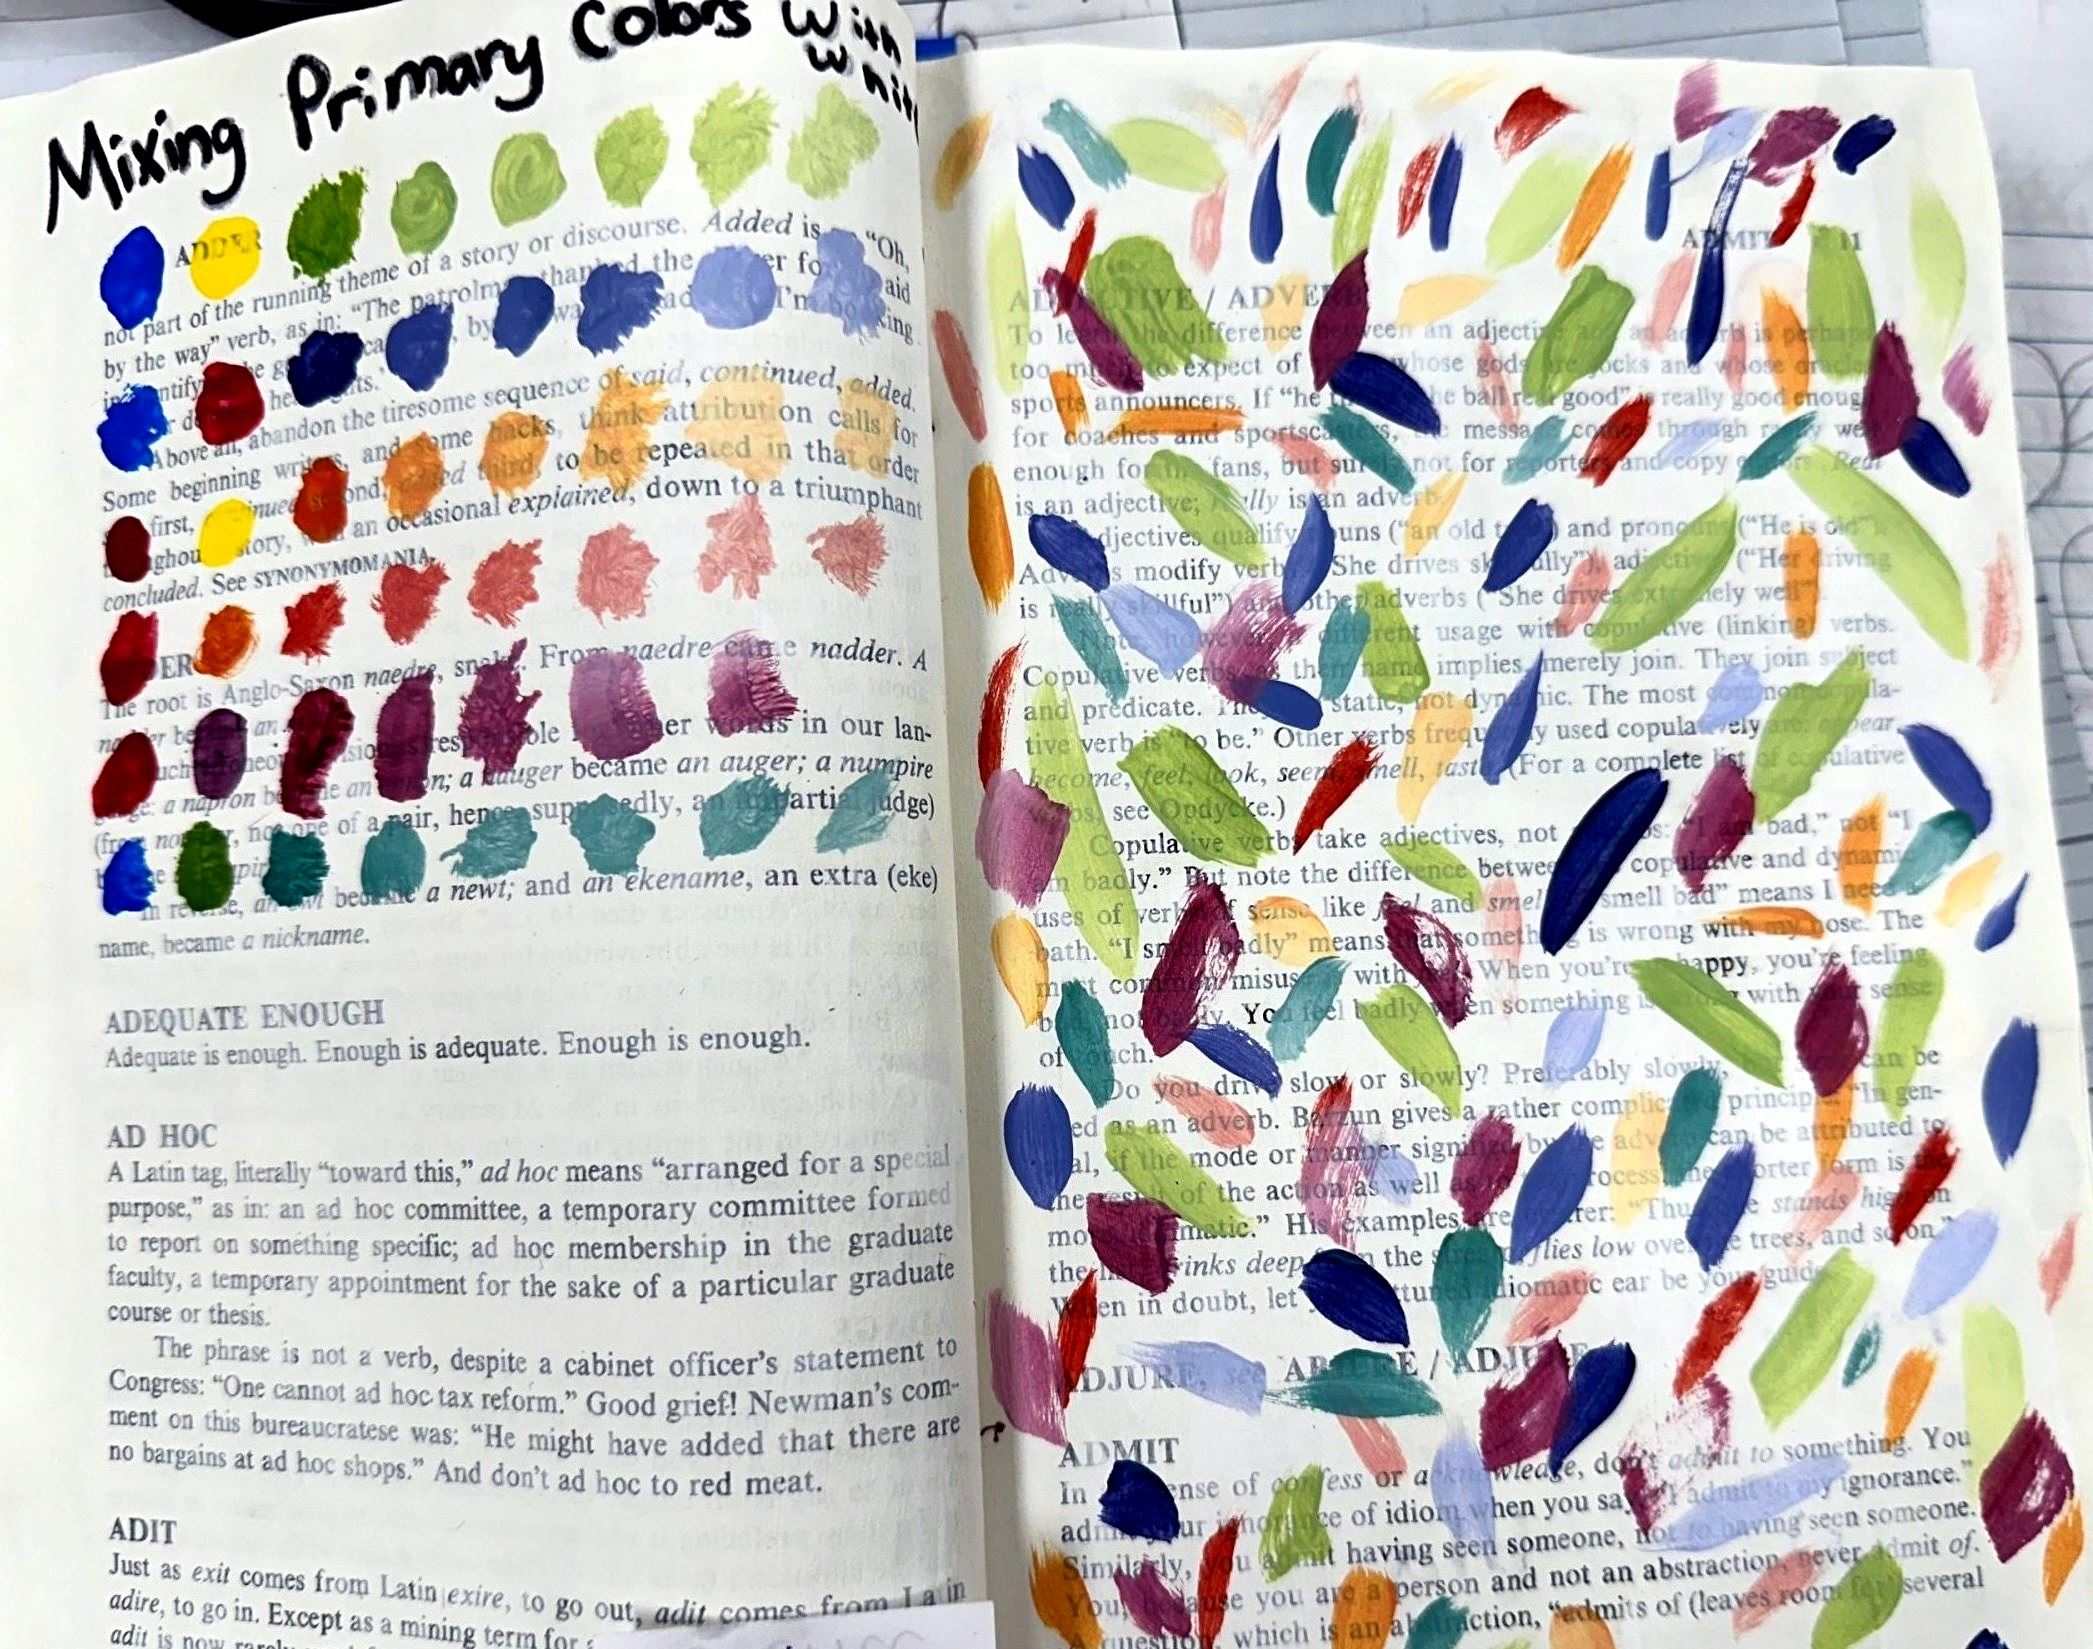 Mixing Primary Colors With
Whit
ADDER
not part of the running theme of a story or discourse. Added is "Oh,
by the way" verb, as in: "The the said
Above all, abandon the tiresome sequence of said, continued, added.
Some beginning and some hacks, think attribution calls for
first, third, to be repeated in that order
story, an occasional explained, down to a triumphant
concluded. See SYNONYMOMANIA.
ER
The root is Anglo-Saxon naedre, From naedre came nadder. A
an words in our lan-
a napron an a nauger became an auger; a numpire
of a pair, hence, supposedly, an impartial judge)
In reverse, an a newt; and an ekename, an extra (eke)
name, became a nickname.
ADEQUATE ENOUGH
Adequate is enough. Enough is adequate. Enough is enough.
AD HOC
A Latin tag, literally "toward this," ad hoc means "arranged for a special
purpose," as in: an ad hoc committee, a temporary committee formed
to report on something specific; ad hoc membership in the graduate
faculty, a temporary appointment for the sake of a particular graduate
course or thesis.
The phrase is not a verb, despite a cabinet officer's statement to
Congress: "One cannot ad hoc tax reform." Good grief! Newman's com-
ment on this bureaucratese was: "He might have added that there are
no bargains at ad hoc shops." And don't ad hoc to red meat.
ADIT
Just as exit comes from Latin exire, to go out, adit comes from Latin
adire, to go in. Except as a mining term for
adit is now
ADMIT 11
ADJECTIVE / ADVERB
To the difference between an adjective an is perhaps
too to expect of whose gods are jocks and whose
sports announcers. If "he the ball real good" is really good enough
for coaches and sportscasters, the message comes through
enough for the fans, but not for reporters and copy Real
is an adjective; really is an adverb.
Adjectives qualify nouns ("an old and pronouns ("He is old"),
Adverbs modify verbs She drives adjectives ("Her driving
is really skillful") and other adverbs ("She drives extremely well").
Note, however, different usage with copulative (linking) verbs.
Copulative verbs, as the name implies, merely join. They join subject
and predicate. They static, not dynamic. The most common copula-
tive verb is "to be." Other verbs frequently used copulatively are: appear,
become, feel, look, seem, smell, taste. (For a complete list of copulative
verbs, see Opdycke.)
Copulative verbs take adjectives, not "I am bad," not "I
am badly." But note the difference between copulative and dynamic
uses of verbs of sense like feel and smell smell bad" means I need a
bath. "I smell badly" means that something is wrong with my nose. The
most common misuse with When you're happy, you're feeling
You feel badly when something is with your sense
of touch.
Do you drive slow or slowly? Preferably slowly, can be
used as an adverb. Barzun gives a rather complicated principle: "In gen-
eral, if the mode or manner signified by the can be attributed to
the result of the action as well as process, the shorter form is the
His examples are "Thus stands high on
the drinks deep the flies low over the trees, and so on."
When in doubt, let idiomatic ear be your guide.
ADJURE, see ABJURE / ADJURE
ADMIT
In sense of confess or acknowledge, don't admit to something. You
admit your ignorance of idiom when you say "I admit to my ignorance."
Similarly, you admit having seen someone, not to having seen someone.
You, because you are a person and not an abstraction, never admit of.
A question, which is an abstraction, "admits of (leaves room for) several